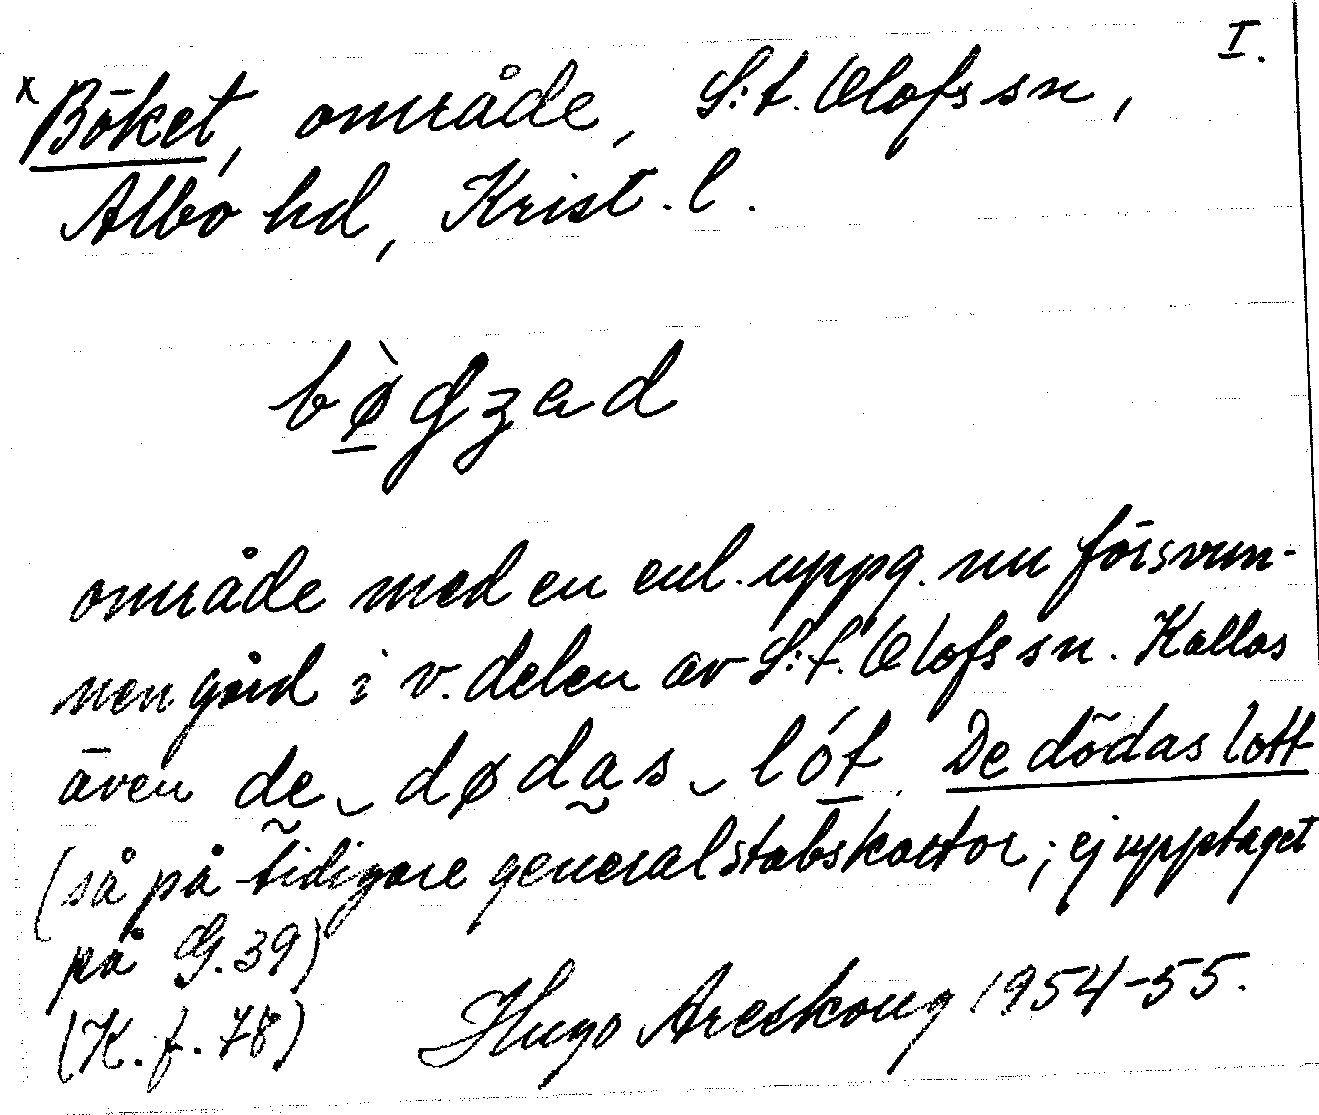 I.
x Böket, område, S:t. Olofs sn,
Albo hd, Krist. l.
bø̠̀gʒad
område med en enl. uppg. nu försvun-
nen gård i v. delen av S:t. Olofs sn. Kallas
även de dødas lót. De dödas lott
(så på tidigare generalstabskartor; ej upptaget
på G. 39)
(K. f. 78) Hugo Areskoug 1954-55.